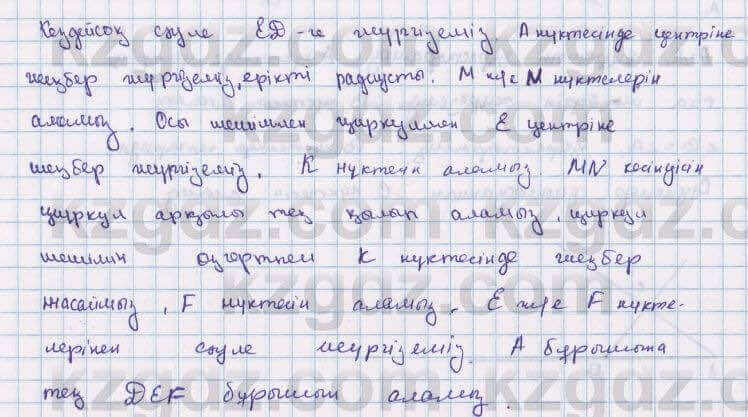 Кездейсоқ сәуле ED-ге жүргіземіз. A нүктесінде центріне
шеңбер жүргіземіз, ерікті радиусты. M және N нүктелерін
аламыз. Осы шешіммен циркулмен E центріне
шеңбер жүргіземіз. K нүктені аламыз. MN кесіндісін
циркул арқылы тең қылып аламыз, циркул
шешімін өзгертпей K нүктесінде шеңбер
жасаймыз, F нүктесін аламыз. E және F нүкте-
лерінен сәуле жүргіземіз. A бұрышына
тең DEF бұрышын аламыз.
kzgdz.com